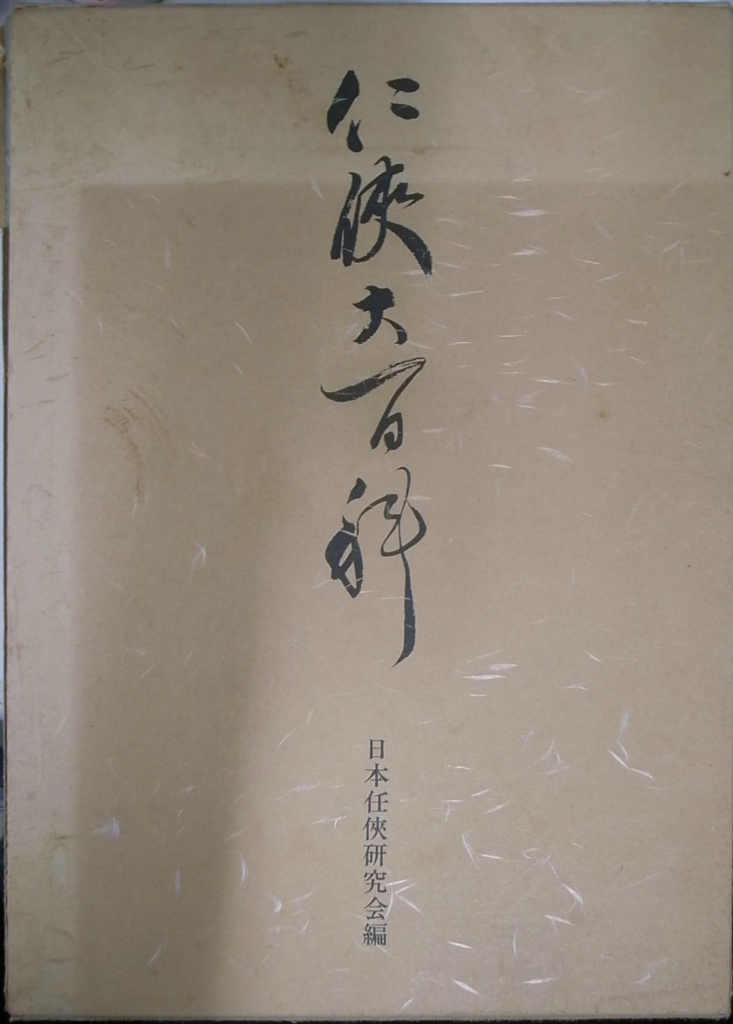 仁俠大百科
日本任俠研究会編